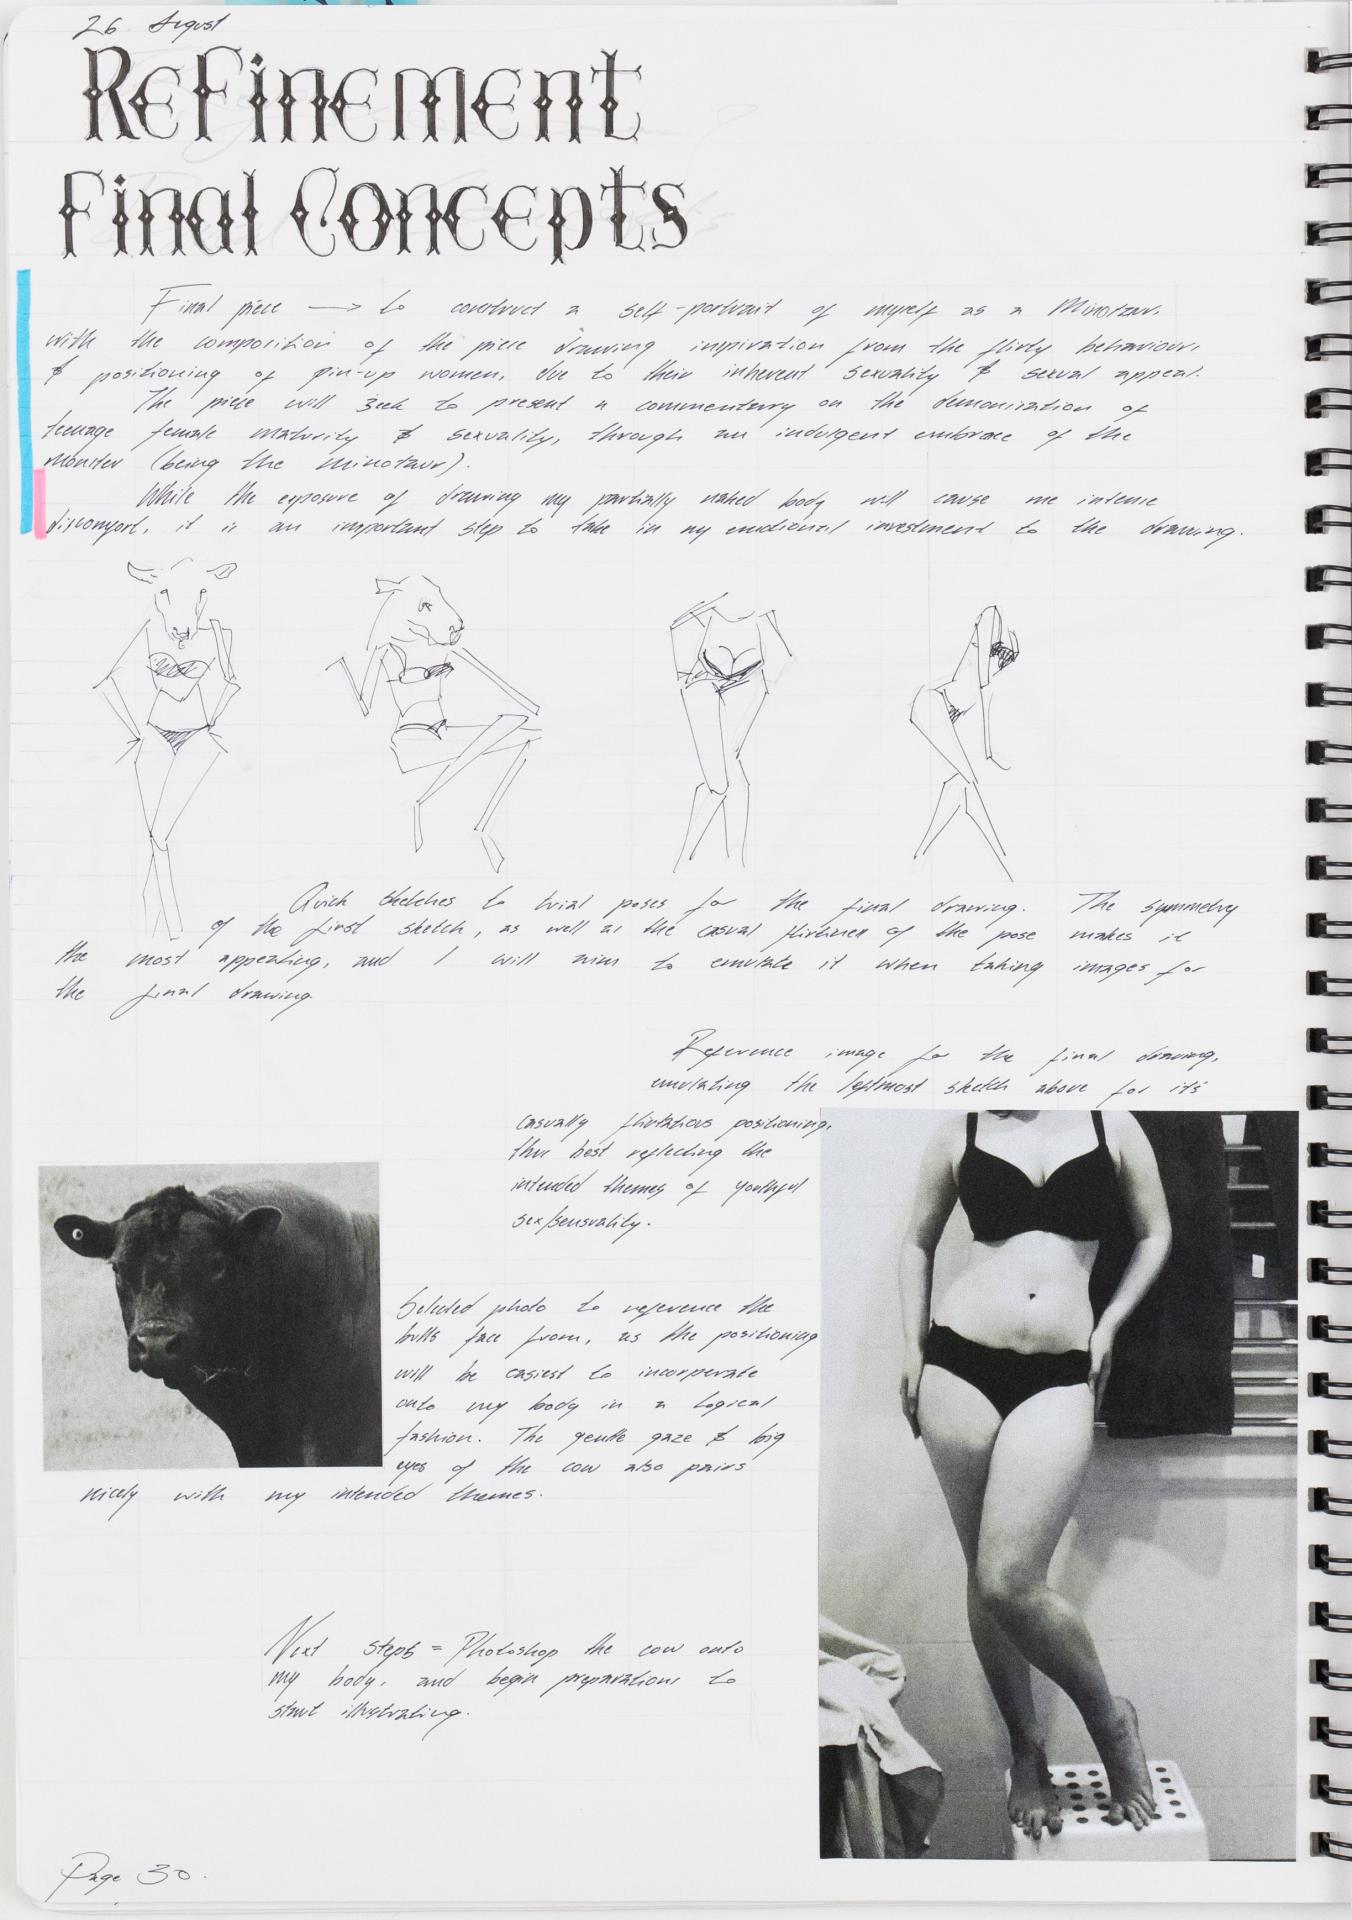 26 August
Refinement
Final Concepts
Final piece → to construct a self-portrait of myself as a Minotaur,
with the composition of the piece drawing inspiration from the flirty behaviour
& positioning of pin-up women, due to their inherent sexuality & sexual appeal.
The piece will seek to present a commentary on the demonisation of
teenage female maturity & sexuality, through an indulgent embrace of the
monster (being the minotaur).
While the exposure of drawing my partially naked body will cause me intense
discomfort, it is an important step to take in my emotional investment to the drawing.
Quick sketches to trial poses for the final drawing. The symmetry
of the first sketch, as well as the casual flirtiness of the pose makes it
the most appealing, and I will aim to emulate it when taking images for
the final drawing.
Reference image for the final drawing,
emulating the leftmost sketch above for it's
casually flirtatious positioning,
thus best reflecting the
intended themes of youthful
sex/sensuality.
Selected photo to reference the
bulls face from, as the positioning
will be easiest to incorporate
onto my body in a logical
fashion. The gentle gaze & big
eyes of the cow also pairs
nicely with my intended themes.
Next steps = Photoshop the cow onto
my body, and begin preparations to
start illustrating.
Page 30.